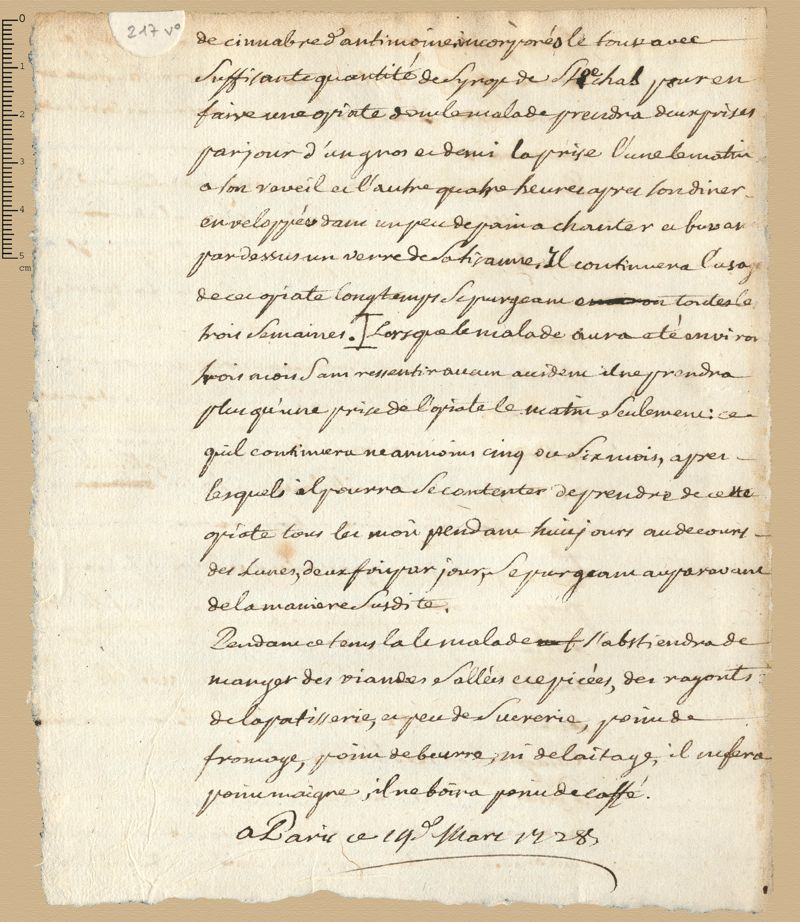 217 v°
de cinnabre d'antimoine incorporés le tout avec
suffisante quantité de Syrop de Stœchas pour en
faire une opiate dont le malade prendra deux prises
par jour d'un gros et demi la prise l'une le matin
a son reveil et l'autre quatre heures apres son diner
enveloppée dans un peu de pain a chanter et buvant
par dessus un verre de sa tisanne, Il continuera l'usage
de cet opiate longtemps se purgeant environ toutes les
trois semaines. [Lorsque le malade aura eté environ
trois mois sans ressentir aucun accident il ne prendra
plus qu'une prise de l'opiate le matin seulement: ce
quil continuera neanmoins cinq ou six mois, apres
lesquels il pourra se contenter de prendre de cette
opiate tous les mois pendant huit jours au decours
des Lunes, deux fois par jour, se purgeant auparavant
de la maniere susdite.
Pendant ce tems la le malade s'abstiendra de
manger des viandes sallées et epicées, des ragouts
de la patisserie, et peu de sucrerie, point de
fromage, point de beurre, ni de laitage, il ne fera
point maigre, il ne boira point de caffé.
a Paris ce 19d Mars 1728
0
1
2
3
4
5
cm